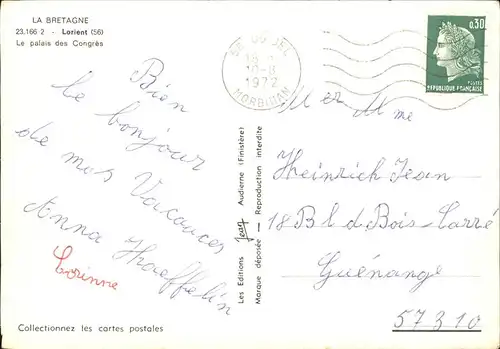 LA BRETAGNE
23.166 2 - Lorient (56)
Le palais des Congrès
Bien
le bonjour
de mes Vacances
Anna Haeffelin
Corinne
Collectionnez les cartes postales
Les Editions Jean Audierne (Finistère)
Marque déposée — Reproduction interdite
1972
MORBIHAN
0,30
POSTES
REPUBLIQUE FRANÇAISE
M er M me
Heinrich Jean
18 Bl d Bois-Carré
Guénange
57310